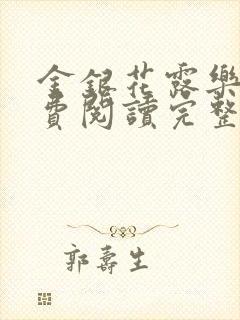 金銀花露樂
費閱讀完整
郭壽生